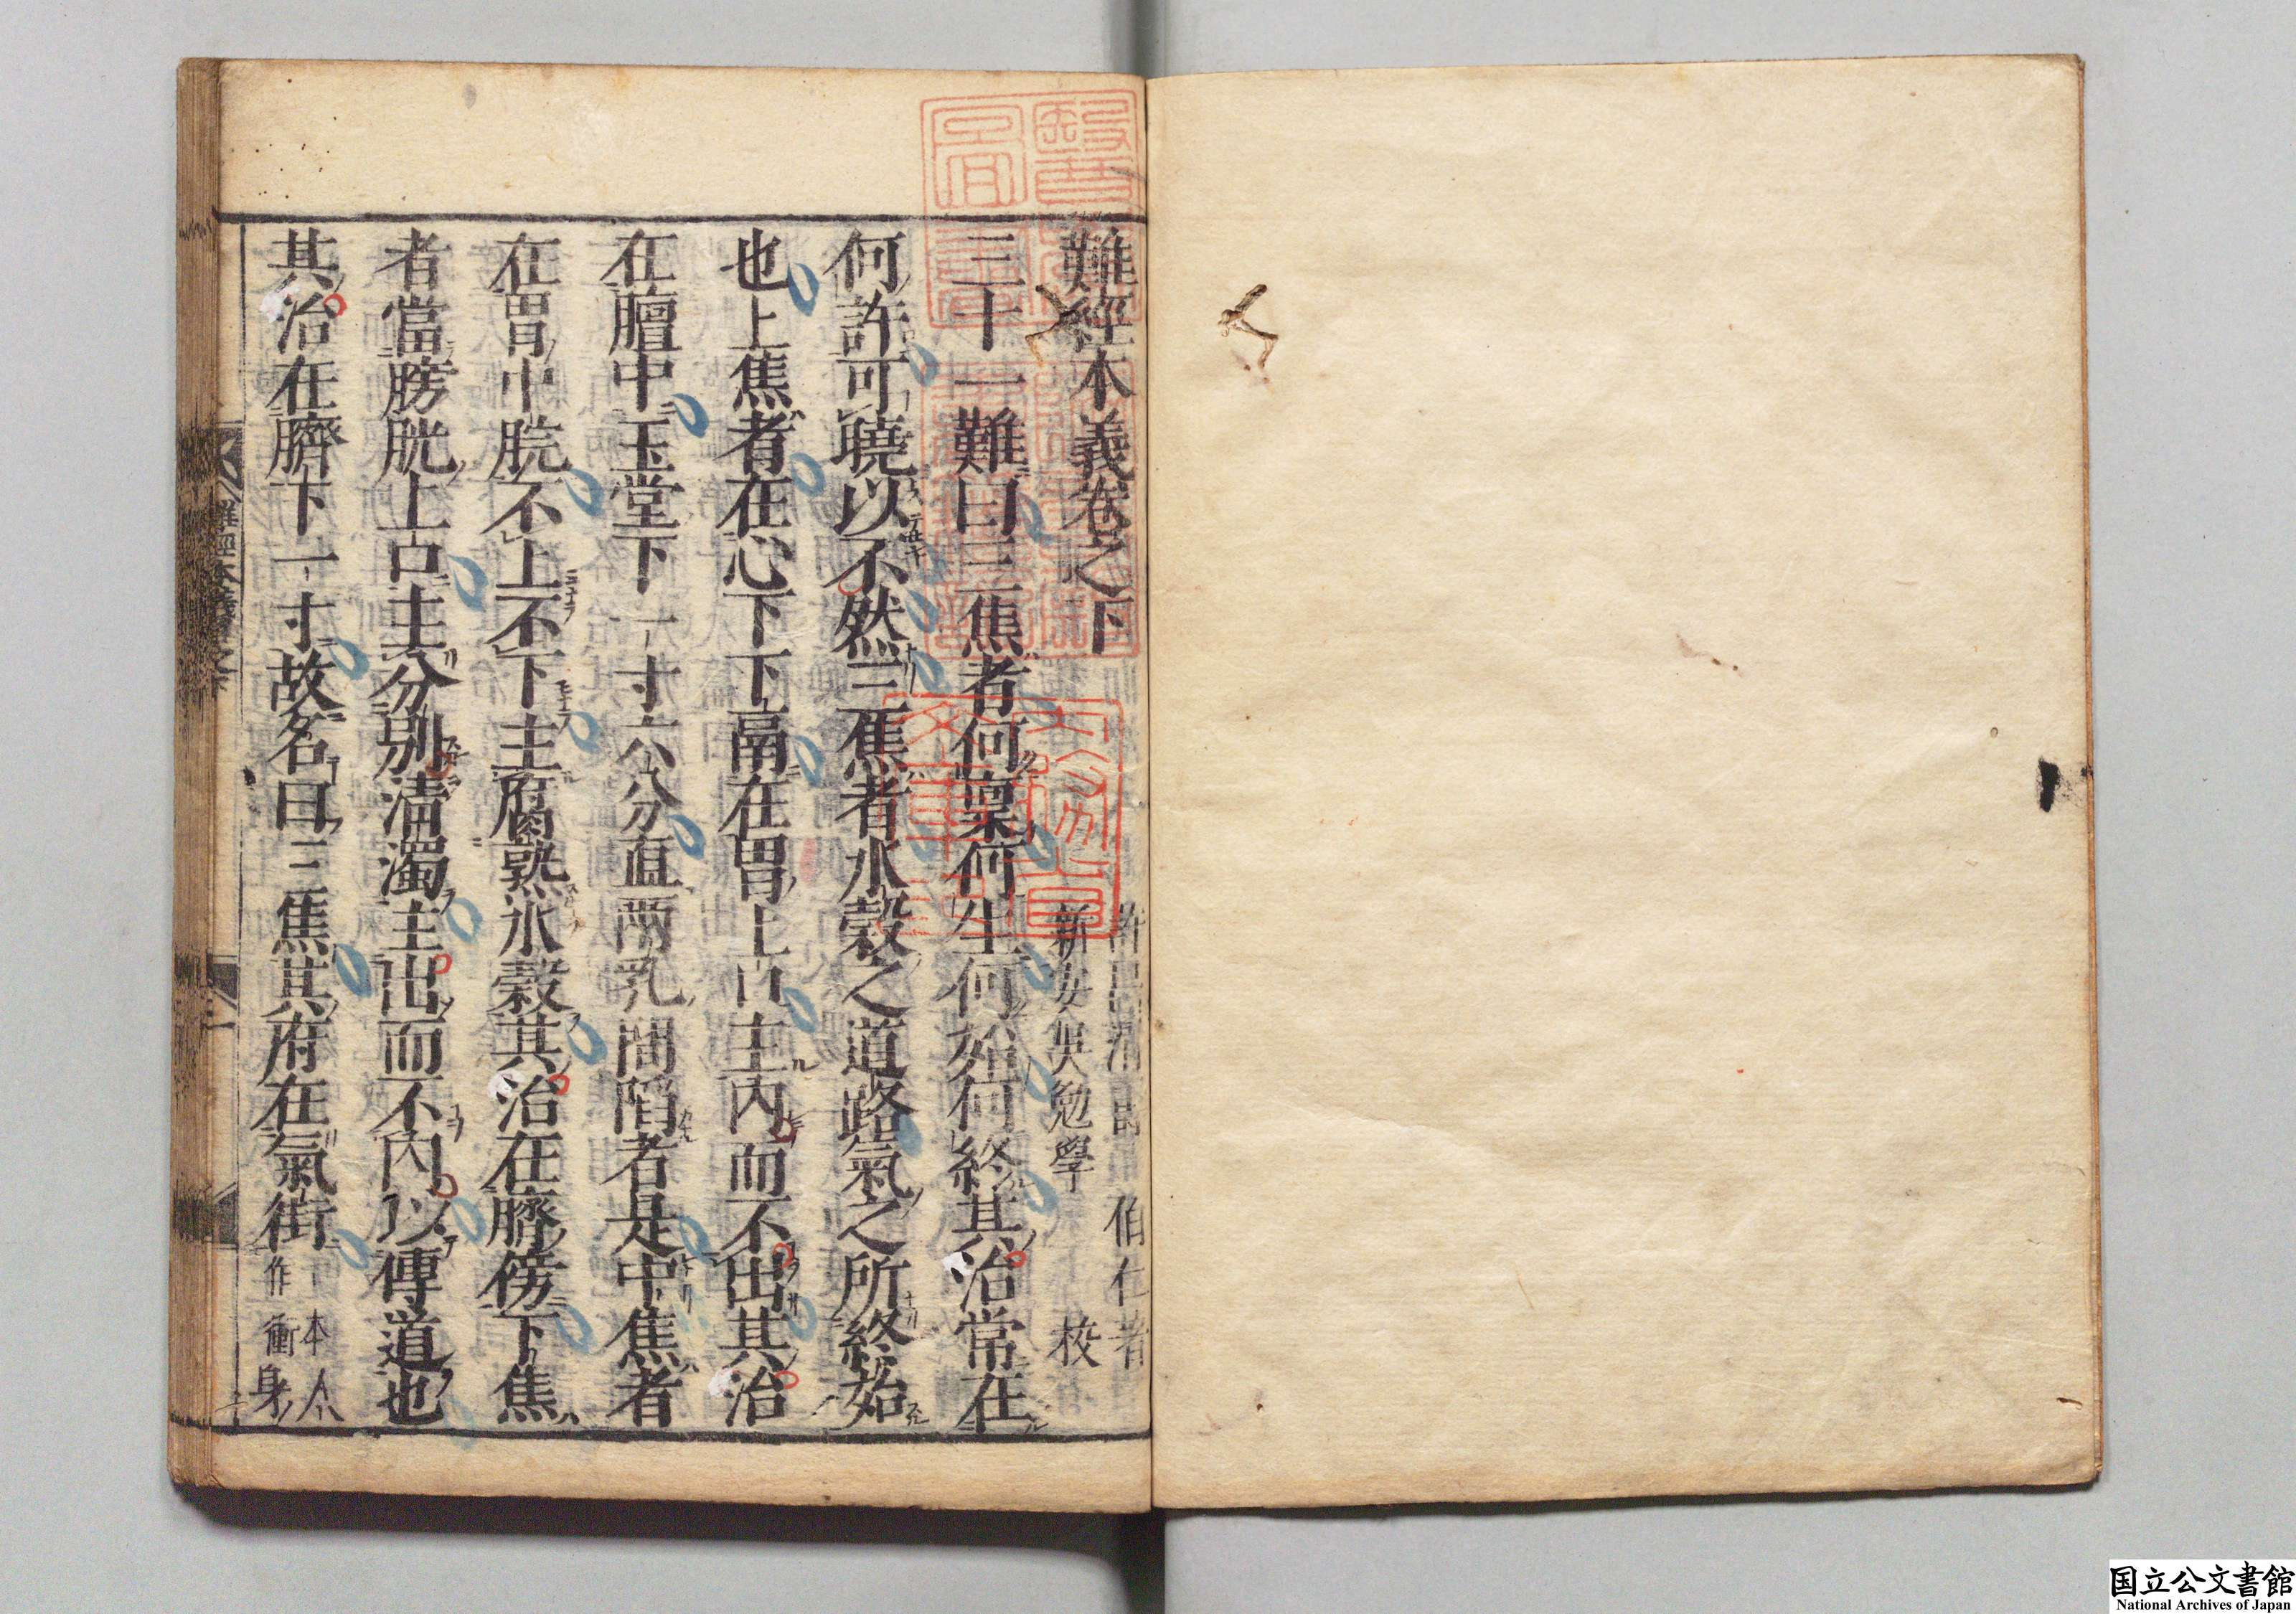 難經本義卷之下
許昌滑壽伯仁著
新安吳勉學校
三十一難曰三焦者何稟何生何始何終其治常在
何許可曉以不然三焦者水穀之道路氣之所終始
也上焦者在心下下鬲在胃上口主內而不出其治
在膻中玉堂下一寸六分直兩乳間陷者是中焦者
在胃中脘不上不下主腐熟水穀其治在臍傍下焦
者當膀胱上口主分別清濁主出而不內以傳道也
其治在臍下一寸故名曰三焦其府在氣街一本作衝
難經本義卷之下
国立公文書館
National Archives of Japan